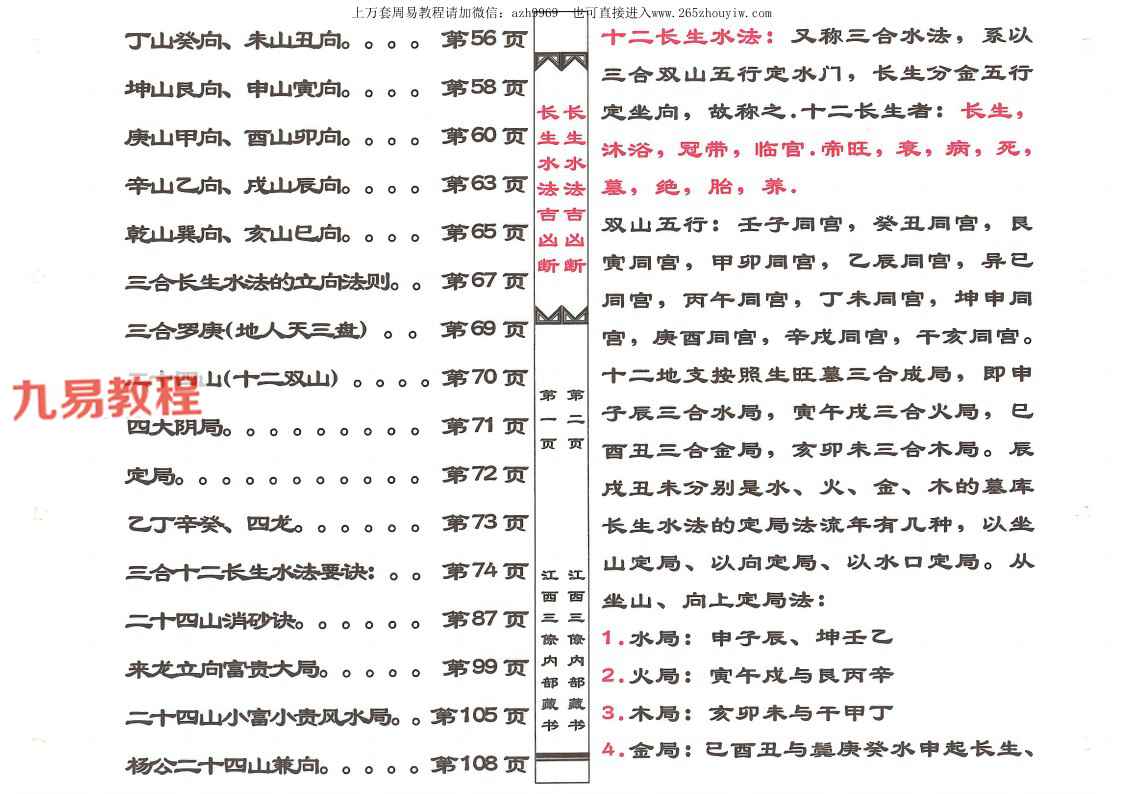 上万套周易教程请加微信：azh9969 也可直接进入www.265zhouyiw.com
丁山癸向、未山丑向。。。。第56页
坤山艮向、申山寅向。。。。第58页
庚山甲向、酉山卯向。。。。第60页
辛山乙向、戌山辰向。。。。第63页
乾山巽向、亥山巳向。。。。第65页
三合长生水法的立向法则。。第67页
三合罗庚(地人天三盘)。。第69页
二十四山(十二双山)。。。。第70页
四大阴局。。。。。。。。。第71页
定局。。。。。。。。。。。第72页
乙丁辛癸、四龙。。。。。。第73页
三合十二长生水法要诀：。。第74页
二十四山消砂诀。。。。。。第87页
来龙立向富贵大局。。。。。第99页
二十四山小富小贵风水局。。第105页
杨公二十四山兼向。。。。。第108页
九易教程
长生水法吉凶断
第一页
江西三僚内部藏书
长生水法吉凶断
第二页
江西三僚内部藏书
十二长生水法：又称三合水法，系以
三合双山五行定水门，长生分金五行
定坐向，故称之.十二长生者：长生，
沐浴，冠带，临官.帝旺，衰，病，死，
墓，绝，胎，养.
双山五行：壬子同宫，癸丑同宫，艮
寅同宫，甲卯同宫，乙辰同宫，异巳
同宫，丙午同宫，丁未同宫，坤申同
宫，庚酉同宫，辛戌同宫，干亥同宫。
十二地支按照生旺墓三合成局，即申
子辰三合水局，寅午戌三合火局，巳
酉丑三合金局，亥卯未三合木局。辰
戌丑未分别是水、火、金、木的墓库
长生水法的定局法流年有几种，以坐
山定局、以向定局、以水口定局。从
坐山、向上定局法：
1.水局：申子辰、坤壬乙
2.火局：寅午戌与艮丙辛
3.木局：亥卯未与干甲丁
4.金局：已酉丑与巽庚癸水申起长生、